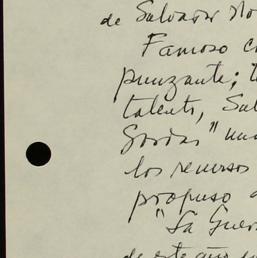 de Salvador No
Famoso c
punzante; t
talento, Sal
Gordas" un
los recursos
propuso a
"La Guer
de este año